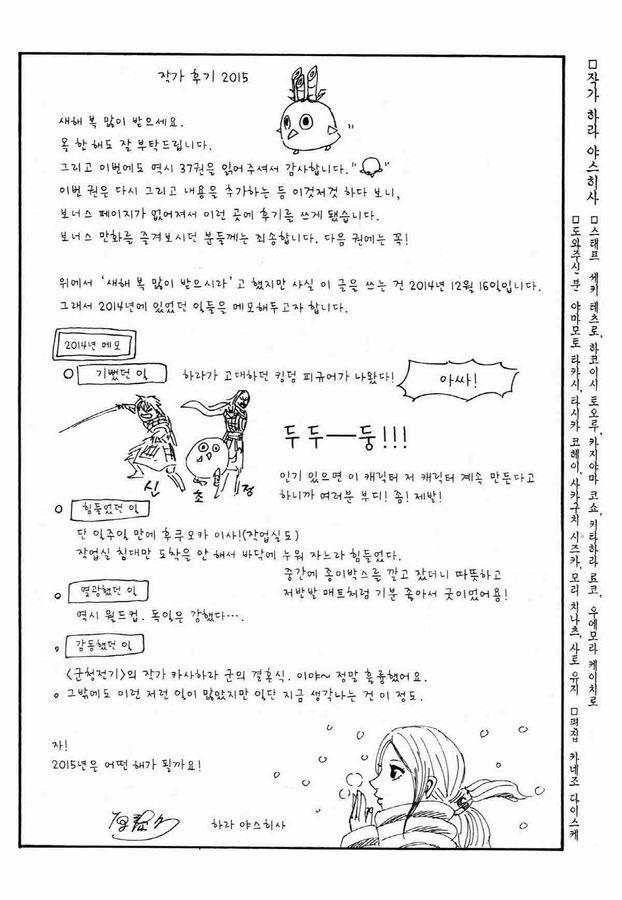 작가 후기 2015
새해 복 많이 받으세요.
올 한해도 잘 부탁드립니다.
그리고 이번에도 역시 37권을 읽어주셔서 감사합니다.
이번 권은 다시 그리고 내용을 추가하는 등 이것저것 하다 보니,
보너스 페이지가 없어져서 이런 곳에 후기를 쓰게 됐습니다.
보너스 만화를 즐겨보시던 분들께는 죄송합니다. 다음 권에는 꼭!
위에서 '새해 복 많이 받으시라'고 했지만 사실 이 글을 쓰는 건 2014년 12월 16일입니다.
그래서 2014년에 있었던 일들을 메모해두고자 합니다.
2014년 메모
○ 기뻤던 일 하라가 고대하던 킹덤 피규어가 나왔다!
아싸!
두두—둥!!!
신 초 정
인기 있으면 이 캐릭터 저 캐릭터 계속 만든다고
하니까 여러분 부디! 좀! 제발!
○ 힘들었던 일
단 일주일 만에 후쿠오카 이사!(작업실도)
작업실 침대만 도착을 안 해서 바닥에 누워 자느라 힘들었다.
중간에 종이박스를 깔고 잤더니 따뜻하고
저반발 매트처럼 기분 좋아서 굿이었어욤!
○ 열광했던 일
역시 월드컵. 독일은 강했다….
○ 감동했던 일
<군청전기>의 작가 카사하라 군의 결혼식. 이야~ 정말 훌륭했어요.
○ 그밖에도 이런 저런 일이 많았지만 일단 지금 생각나는 건 이 정도.
자!
2015년은 어떤 해가 될까요!
하라 야스히사
□작가 하라 야스히사
□스태프 세키 테츠로, 하코이시 토오루, 카지야마 코쇼, 키타하라 료코, 우에모라 케이치로
□도와주신 분 야마모토 타카시, 타시카 코헤이, 사카구치 시즈카, 모리 치나츠, 사토 유지 □편집 카네조 다이스케